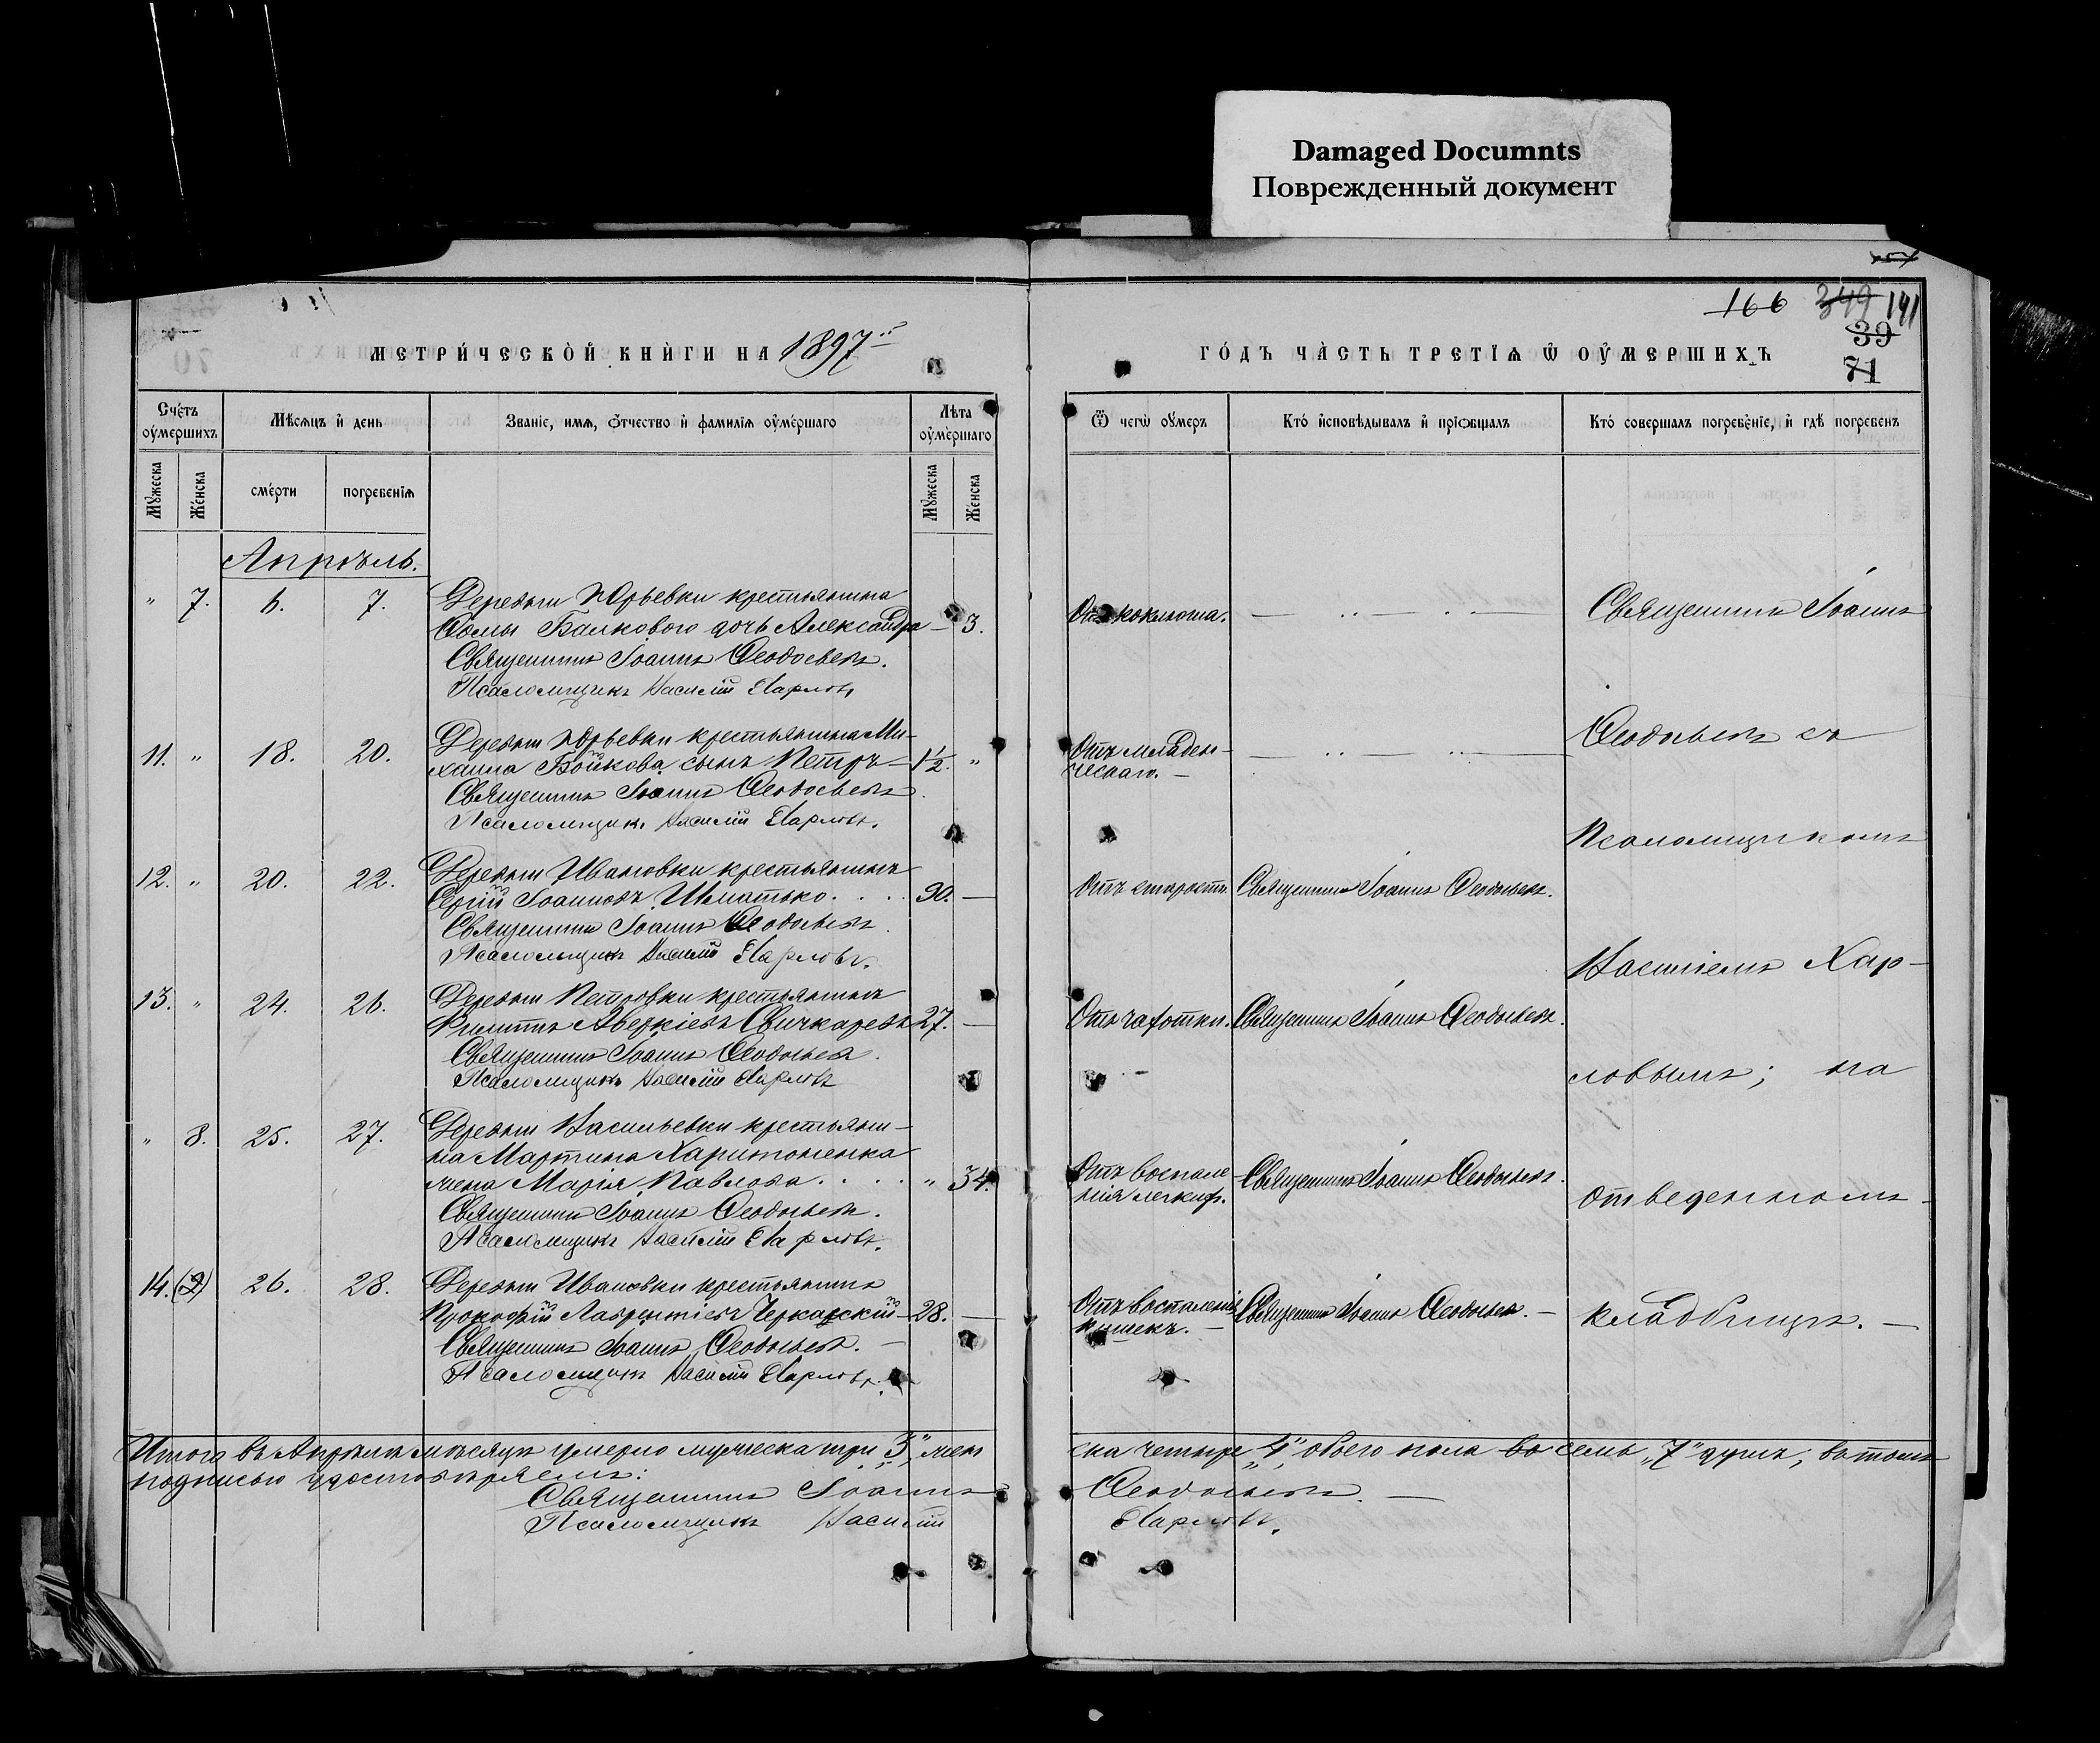 Damaged Documnts
Поврежденный документ
166 349 141
39
71
МЕТРИ́ЧЕСКОЙ КНИ́ГИ НА 1897й
ГО́ДЪ ЧА́СТЬ ТРЕТІѦ Ѡ ОУ҆МЕРШИХЪ
Сче́тъ оу҆мершихъ
Мѣсѧцъ и҆ день
Званіе, имѧ, ѻ҆тчество и҆ фамиліѧ оу҆ме́ршаго
Лѣта оу҆ме́ршаго
Ѿ чегѡ оу҆меръ
Кто́ и҆сповѣдывалъ и҆ прїѡбщалъ
Кто́ совершалъ погребе́ніе, и҆ гдѣ погребенъ
Мꙋжеска
Же́нска
сме́рти
погребеніѧ
Мꙋжеска
Же́нска
Апрѣль.
" 7. 6. 7. Деревни Юрьевки крестьянина
Ѳомы Балкового дочь Александра — 3.
Священникъ Іоаннъ Ѳеодосьевъ.
Псаломщикъ Василій Харловъ
Отъ коклюша.
Священникъ Іоаннъ
11. " 18. 20. Деревни Юрьевки крестьянина Ми-
хаила Бойкова сынъ Петръ — 1½. "
Священникъ Іоаннъ Ѳеодосьевъ
Псаломщикъ Василій Харловъ.
Отъ младен-
ческаго. —
Ѳеодосьевъ съ
Псаломщикомъ
12. " 20. 22. Деревни Ивановки крестьянинъ
Сергій Іоанновъ Игнатько . . . . 90. —
Священникъ Іоаннъ Ѳеодосьевъ.
Псаломщикъ Василій Харловъ.
Отъ старости. Священникъ Іоаннъ Ѳеодосьевъ.
Василіемъ Хар-
13. " 24. 26. Деревни Петровки крестьянинъ
Филиппъ Авсркіевъ Свичкаревъ 27. —
Священникъ Іоаннъ Ѳеодосьевъ.
Псаломщикъ Василій Харловъ
Отъ чахотки. Священникъ Іоаннъ Ѳеодосьевъ.
ловымъ; на
" 8. 25. 27. Деревни Васильевки крестьяни-
на Мартина Харитоненка
жена Марія Павлова . . . . " 34.
Священникъ Іоаннъ Ѳеодосьевъ.
Псаломщикъ Василій Харловъ.
Отъ воспале-
нія легкихъ.
Священникъ Іоаннъ Ѳеодосьевъ.
отведенномъ
14. (9) 26. 28. Деревни Ивановки крестьянинъ
Прокофій Лаврентіевъ Черкасскій — 28. —
Священникъ Іоаннъ Ѳеодосьевъ. —
Псаломщикъ Василій Харловъ.
Отъ воспаленія
кишекъ. —
Священникъ Іоаннъ Ѳеодосьевъ. —
кладбищѣ. —
Итого въ Апрѣлѣ мѣсяцѣ умерло мужеска три „3", жен
ска четыре „4", обоего пола во семь „7" душъ; въ томъ
подписью удостовѣряемъ:
Священникъ Іоаннъ Ѳеодосьевъ. —
Псаломщикъ Василій Харловъ.